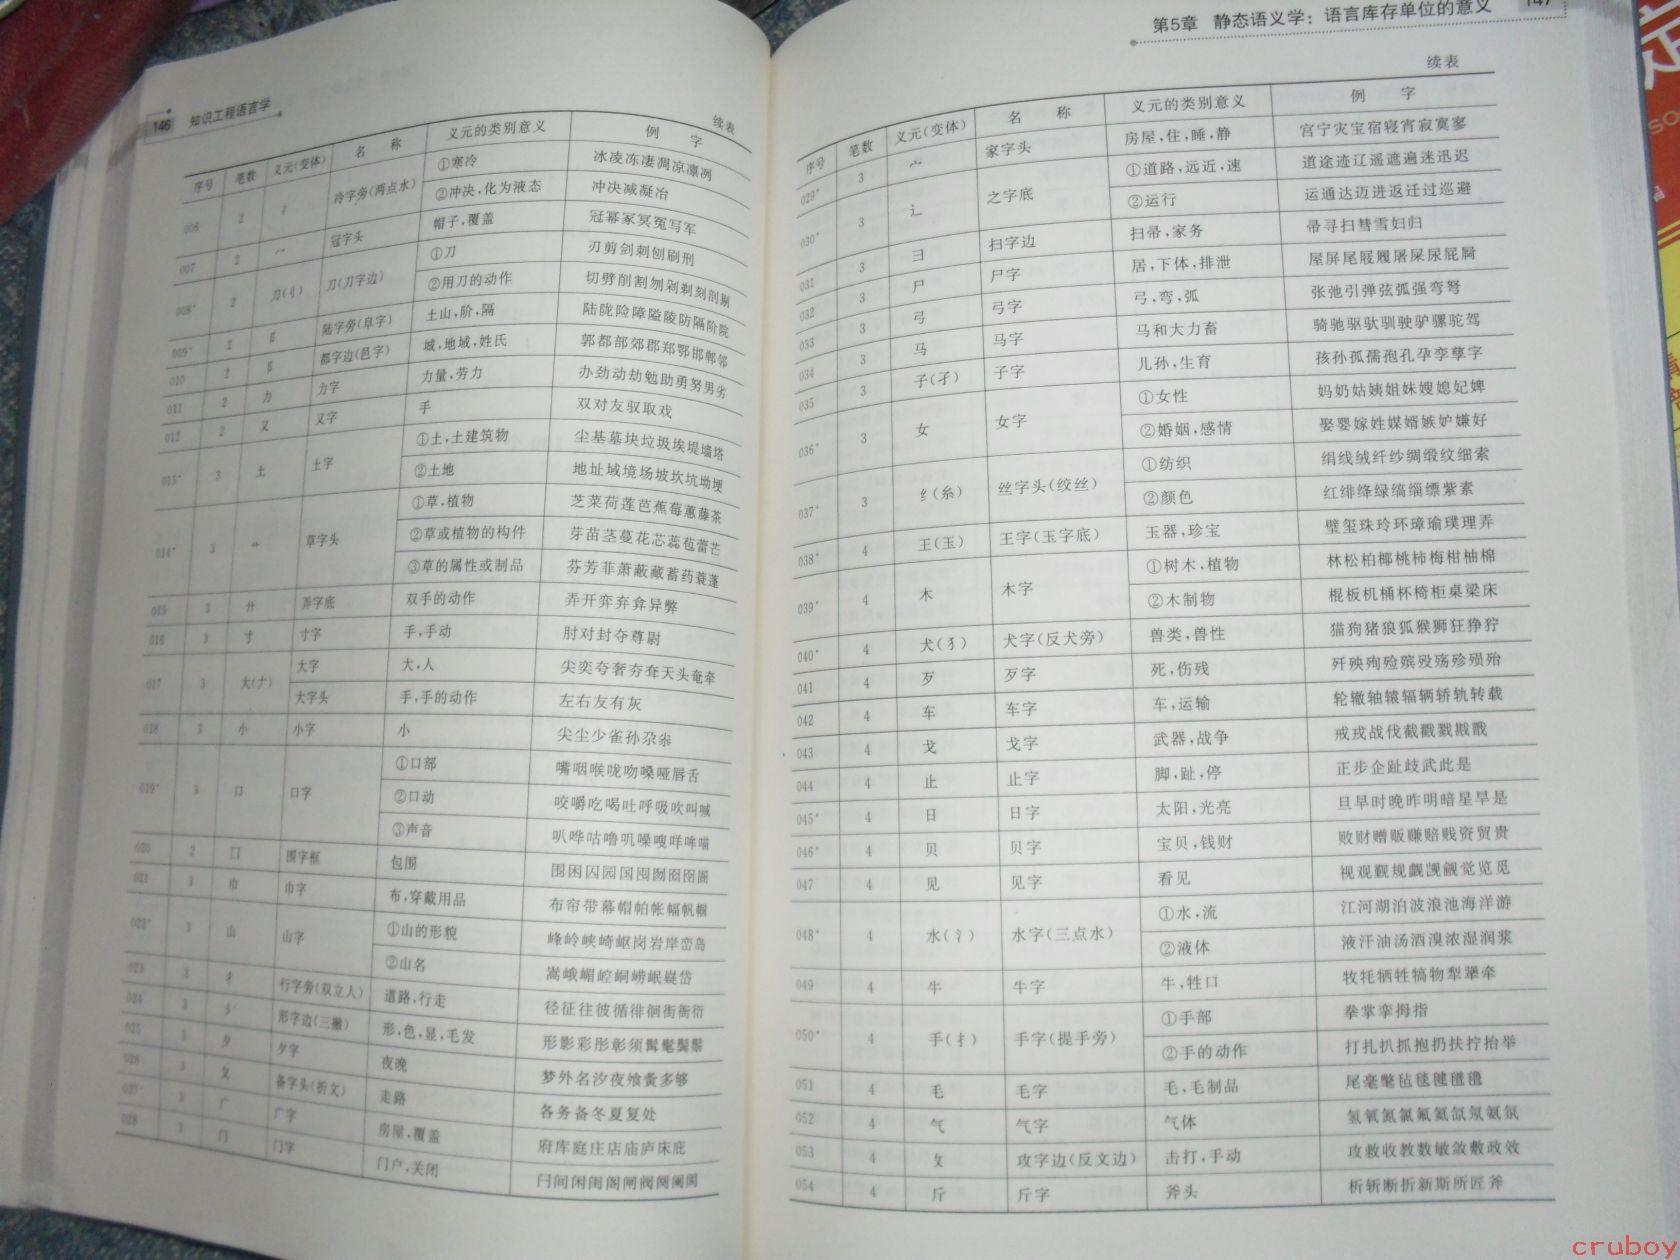 146 知识工程语言学
续表
序号 笔数 义元(变体) 名 称 义元的类别意义 例 字
006 2 冫 冷字旁(两点水) ①寒冷 冰凌冻凄凋凉凛冽
②冲决,化为液态 冲决减凝冶
007 2 冖 冠字头 帽子,覆盖 冠幂冢冥冤写军
008* 2 刀(刂) 刀(刀字边) ①刀 刃剪剑刺刨刷刑
②用刀的动作 切劈削割刎剁剃刻剖剔
009* 2 阝 陆字旁(阜字) 土山,阶,隔 陆陇险障隘陵防隔阶院
010 2 阝 都字边(邑字) 城,地域,姓氏 郭都部郊郡郑鄂邯郸邻
011 2 力 力字 力量,劳力 办劲动劫勉助勇努男劣
012 2 又 又字 手 双对友驭取戏
013* 3 土 土字 ①土,土建筑物 尘基墓块垃圾埃堤墙塔
②土地 地址域境场坡坎坑坳埂
014* 3 艹 草字头 ①草,植物 芝菜荷莲芭蕉莓蕙藤茶
②草或植物的构件 芽苗茎蔓花芯蕊苞蕾芒
③草的属性或制品 芬芳菲萧蔽藏蓄药蓑蓬
015 3 廾 弄字底 双手的动作 弄开弈弃弇异弊
016 3 寸 寸字 手,手动 肘对封夺尊尉
017 3 大(ナ) 大字 大,人 尖奕夸奢夯耷天头奄牵
大字头 手,手的动作 左右友有灰
018 3 小 小字 小 尖尘少雀孙尕
019* 3 口 口字 ①口部 嘴咽喉咙吻嗓哑唇舌
②口动 咬嚼吃喝吐呼吸吹叫喊
③声音 叭哗咕噜叽噪嗖咩哞喵
020 2 囗 围字框 包围 围困囚园国囤囫囵图圃
021 3 巾 巾字 布,穿戴用品 布帘带幕帽帕帐幅帆帼
022* 3 山 山字 ①山的形貌 峰岭峡崎岖岗岩岸峦岛
②山名 嵩峨嵋崆峒崂岷嶷岱
023 3 彳 行字旁(双立人) 道路,行走 径征往彼循徘徊街衙衍
024 3 彡 形字边(三撇) 形,色,显,毛发 形影彩彤彰须髯髦鬓
025 3 夕 夕字 夜晚 梦外名汐夜飧多够
026 3 夂 备字头(折文) 走路 各务备冬夏复处
027* 3 广 广字 房屋,覆盖 府库庭庄店庙庐床庇
028 3 门 门字 门户,关闭 闩间闲闺阁闸阀阕阑闵
第5章 静态语义学:语言库存单位的意义 147
续表
序号 笔数 义元(变体) 名 称 义元的类别意义 例 字
029* 3 宀 家字头 房屋,住,睡,静 宫宁灾宝宿寝宵寂寞寥
030* 3 辶 之字底 ①道路,远近,速 道途迹辽遥遮遍迷迅迟
②运行 运通达迈进返迁过巡避
031 3 彐 扫字边 扫帚,家务 帚寻扫彗雪妇归
032 3 尸 尸字 居,下体,排泄 屋屏尾屐履屠屎尿屁屙
033 3 弓 弓字 弓,弯,弧 张弛引弹弦弧强弯弩
034 3 马 马字 马和大力畜 骑驰驱驮驯驶驴骡驼驾
035 3 子(孑) 子字 儿孙,生育 孩孙孤孺孢孔孕孪孽字
036* 3 女 女字 ①女性 妈奶姑姨姐妹嫂媳妃婢
②婚姻,感情 娶婴嫁姓媒婿嫉妒嫌好
037* 3 纟(糸) 丝字头(绞丝) ①纺织 绢线绒纤纱绸缎纹细索
②颜色 红绯绛绿缟缁缥紫素
038* 4 王(玉) 王字(玉字底) 玉器,珍宝 璧玺珠玲环璋瑜璞理弄
039* 4 木 木字 ①树木,植物 林松柏椰桃柿梅柑柚棉
②木制物 棍板机桶杯椅柜桌梁床
040* 4 犬(犭) 犬字(反犬旁) 兽类,兽性 猫狗猪狼狐猴狮狂狰狞
041 4 歹 歹字 死,伤残 歼殃殉殓殡殁殇殄殒殆
042 4 车 车字 车,运输 轮辙轴辕辐辆轿轨转载
043 4 戈 戈字 武器,战争 戒戎战伐截戳戮戡戬
044 4 止 止字 脚,趾,停 正步企趾歧武此是
045* 4 日 日字 太阳,光亮 旦早时晚昨明暗星旱是
046* 4 贝 贝字 宝贝,钱财 败财赠贩赚赔贱资贸贵
047 4 见 见字 看见 视观觐规觑觊觎觉览觅
048* 4 水(氵) 水字(三点水) ①水,流 江河湖泊波浪池海洋游
②液体 液汗油汤酒溴浓湿润浆
049 4 牛 牛字 牛,牲口 牧牦牺牲犒物犁犟牵
050* 4 手(扌) 手字(提手旁) ①手部 拳掌挛拇指
②手的动作 打扎扒抓抱扔扶拧抬举
051 4 毛 毛字 毛,毛制品 尾毫氅毡毯毽氆氇
052 4 气 气字 气体 氢氧氮氯氟氦氙氖氨氛
053 4 攵 攻字边(反文边) 击打,手动 攻救收教数敏敛敷政效
054 4 斤 斤字 斧头 析斩断折新斯所匠斧
cruboy